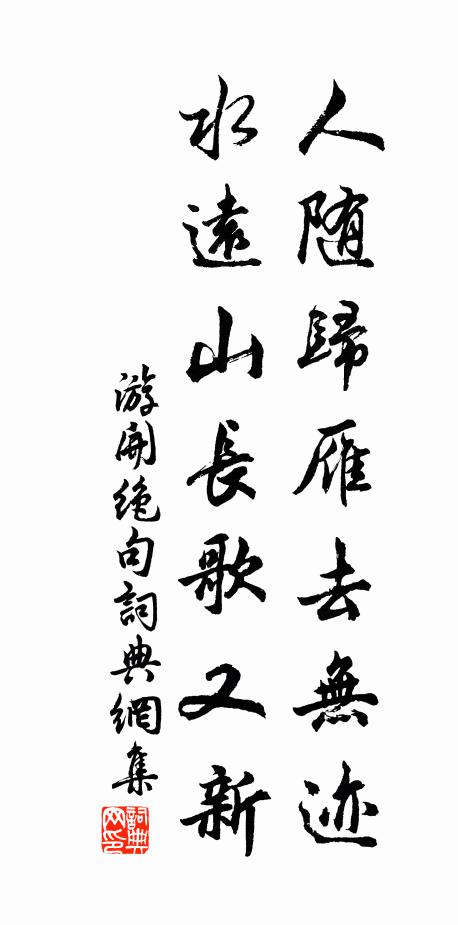 人随歸雁去無迹
水遠山長歌又新
游開绝句詞典網集
詞典網印